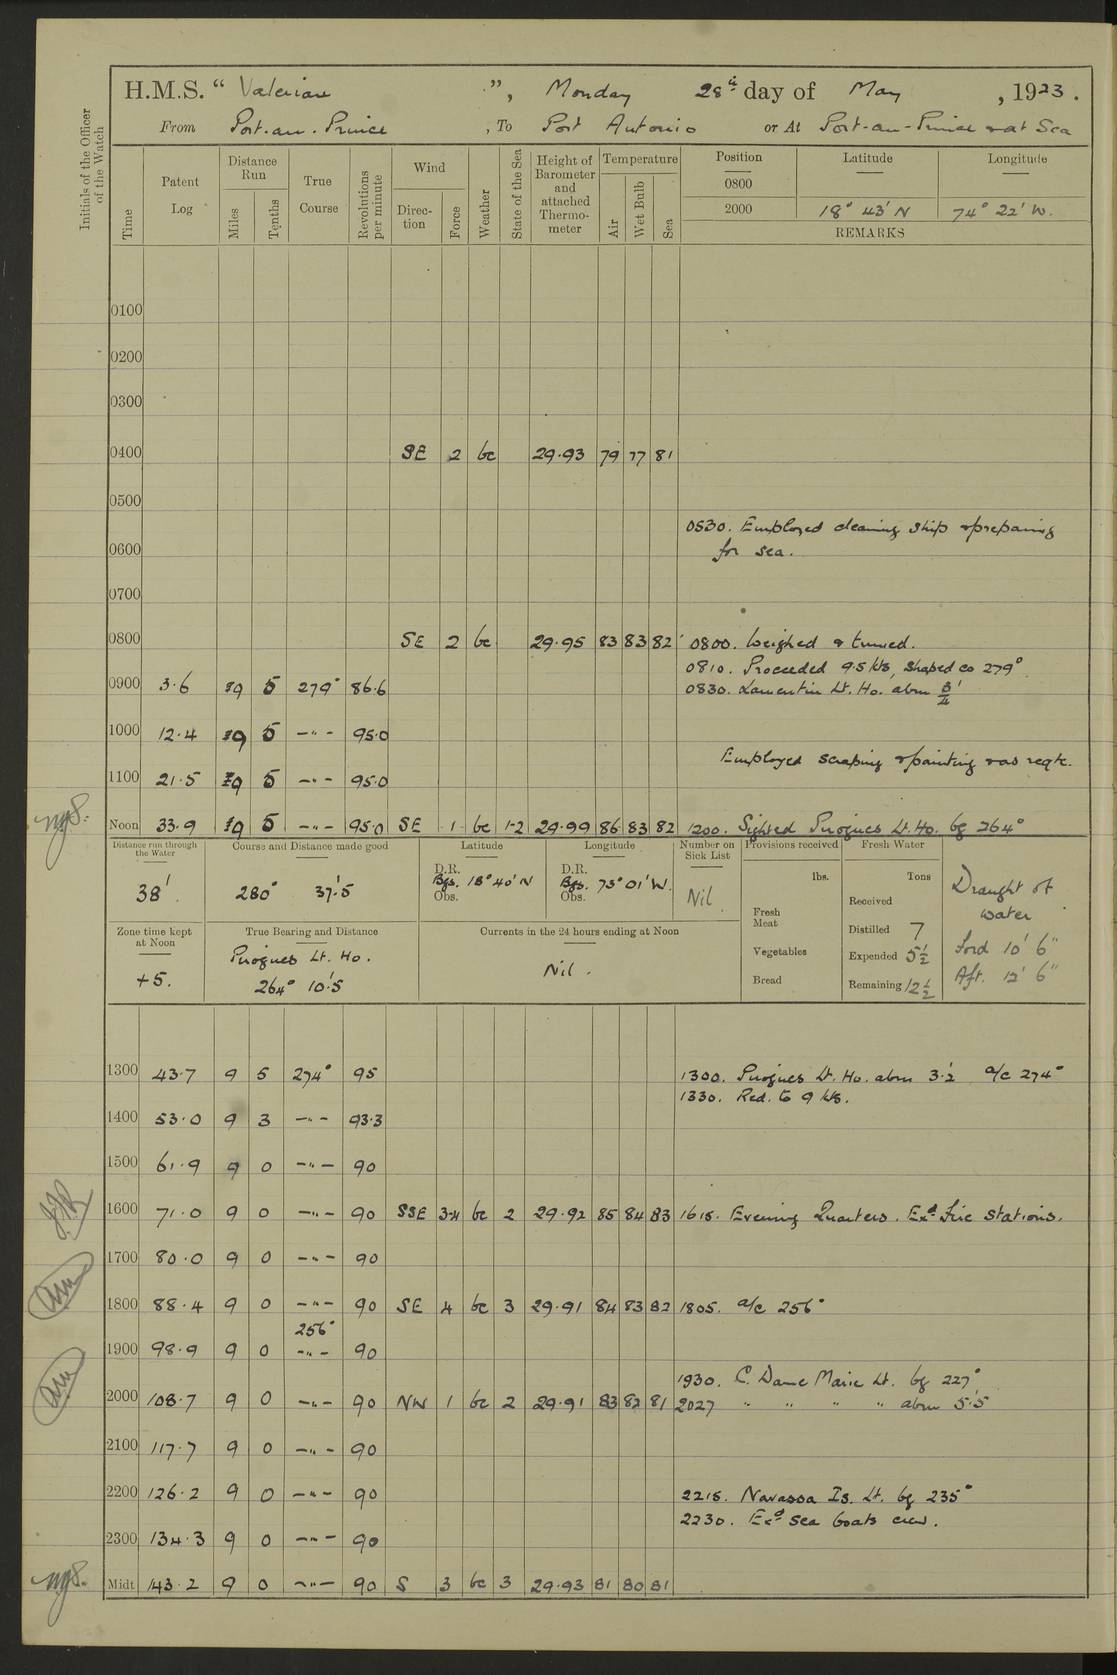 H.M.S. “ Valerian ”, Monday 28th day of May , 1923.
From Port-au-Prince , To Port Antonio or At Port-au-Prince & at Sea
Initials of the Officer of the Watch
Time
Patent Log
Distance Run
Miles
Tenths
True Course
Revolutions per minute
Wind
Direc-tion
Force
Weather
State of the Sea
Height of Barometer and attached Thermo-meter
Temperature
Air
Wet Bulb
Sea
Position Latitude Longitude
0800
2000 18° 43' N 74° 22' W.
REMARKS
0100
0200
0300
0400 SE 2 bc 29·93 79 77 81
0500
0530. Employed cleaning ship & preparing
0600 for sea.
0700
0800 SE 2 bc 29·95 83 83 82 0800. Weighed & turned.
0810. Proceeded 9.5 kts, shaped co 279°
0900 3·6 9 5 279° 86·6 0830. Lamentin Lt. Ho. abm 3/4'
1000 12·4 9 5 -"- 95·0
Employed scraping & painting & as reqte.
1100 21·5 9 5 -"- 95·0
Noon 33·9 9 5 -"- 95·0 SE 1 bc 1-2 29·99 86 83 82 1200. Sighted Pirogues Lt. Ho. bg 264°
Distance run through the Water
38'.
Course and Distance made good
280° 37·'5
Latitude
D.R.
Bgs. 18° 40' N
Obs.
Longitude
D.R.
Bgs. 73° 01' W.
Obs.
Number on Sick List
Nil
Provisions received
lbs.
Fresh Meat
Vegetables
Bread
Fresh Water
Tons
Received
Distilled 7
Expended 5½
Remaining 12½
Draught of water
Ford 10' 6"
Aft. 12' 6"
Zone time kept at Noon
+5.
True Bearing and Distance
Pirogues Lt. Ho.
264° 10·'5
Currents in the 24 hours ending at Noon
Nil.
1300 43·7 9 5 274° 95 1300. Pirogues Lt. Ho. abm 3·'2 a/c 274°
1330. Red. to 9 kts.
1400 53·0 9 3 -"- 93·3
1500 61·9 9 0 -"- 90
1600 71·0 9 0 -"- 90 SSE 3-4 bc 2 29·92 85 84 83 1615. Evening Quarters. Exd. Fire Stations.
1700 80·0 9 0 -"- 90
1800 88·4 9 0 -"- 90 SE 4 bc 3 29·91 84 83 82 1805. a/c 256°
256°
1900 98·9 9 0 -"- 90
1930. C. Dame Marie Lt. bg 227°
2000 108·7 9 0 -"- 90 NW 1 bc 2 29·91 83 82 81 2027 " " " " abm 5·'5
2100 117·7 9 0 -"- 90
2200 126·2 9 0 -"- 90 2215. Navassa Is. Lt. bg 235°
2230. Exd. Sea boats crew.
2300 134·3 9 0 -"- 90
Midt 143·2 9 0 -"- 90 S 3 bc 3 29·93 81 80 81